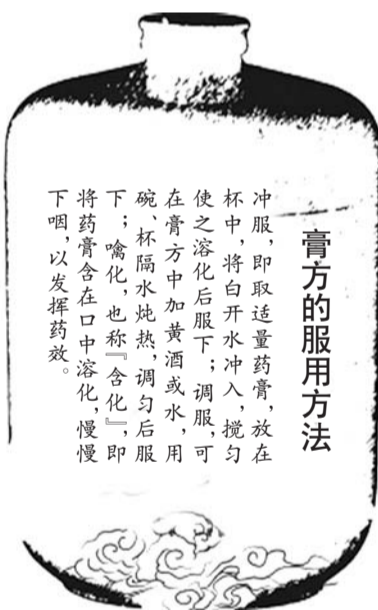 膏方的服用方法
冲服，即取适量药膏，放在
杯中，将白开水冲入，搅匀
使之溶化后服下；调服，可
在膏方中加黄酒或水，用
碗、杯隔水炖热，调匀后服
下；噙化，也称『含化』，即
将药膏含在口中溶化，慢慢
下咽，以发挥药效。